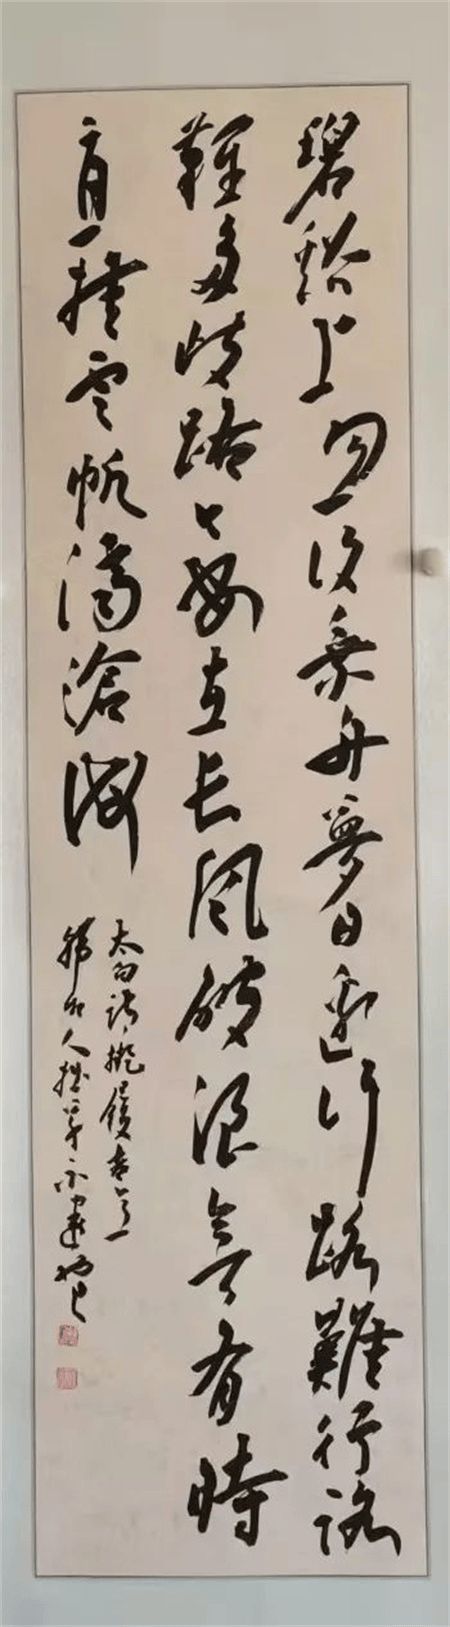 碧谿上忽復乘舟夢日邊行路難行路
難多歧路今安在长風破浪會有時
直掛雲帆濟滄海
太白詩